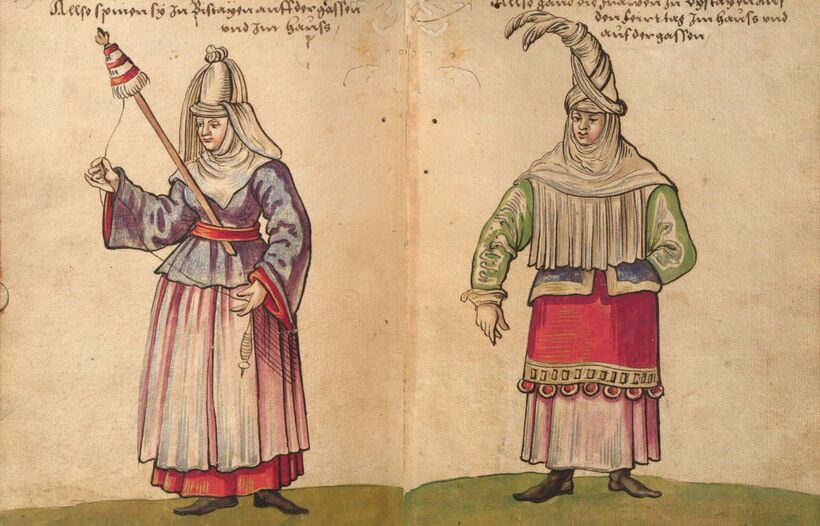 Allso spinen sy In Bistayen auff der gassen
vnd Im hauss,
Allso gand die frawen In Bystayen auf
den feirttag Im hauss vnd
auf der gassen,